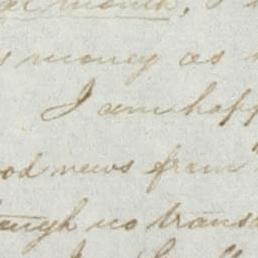 month, I
money as
I am happ
od news from
ough no trans